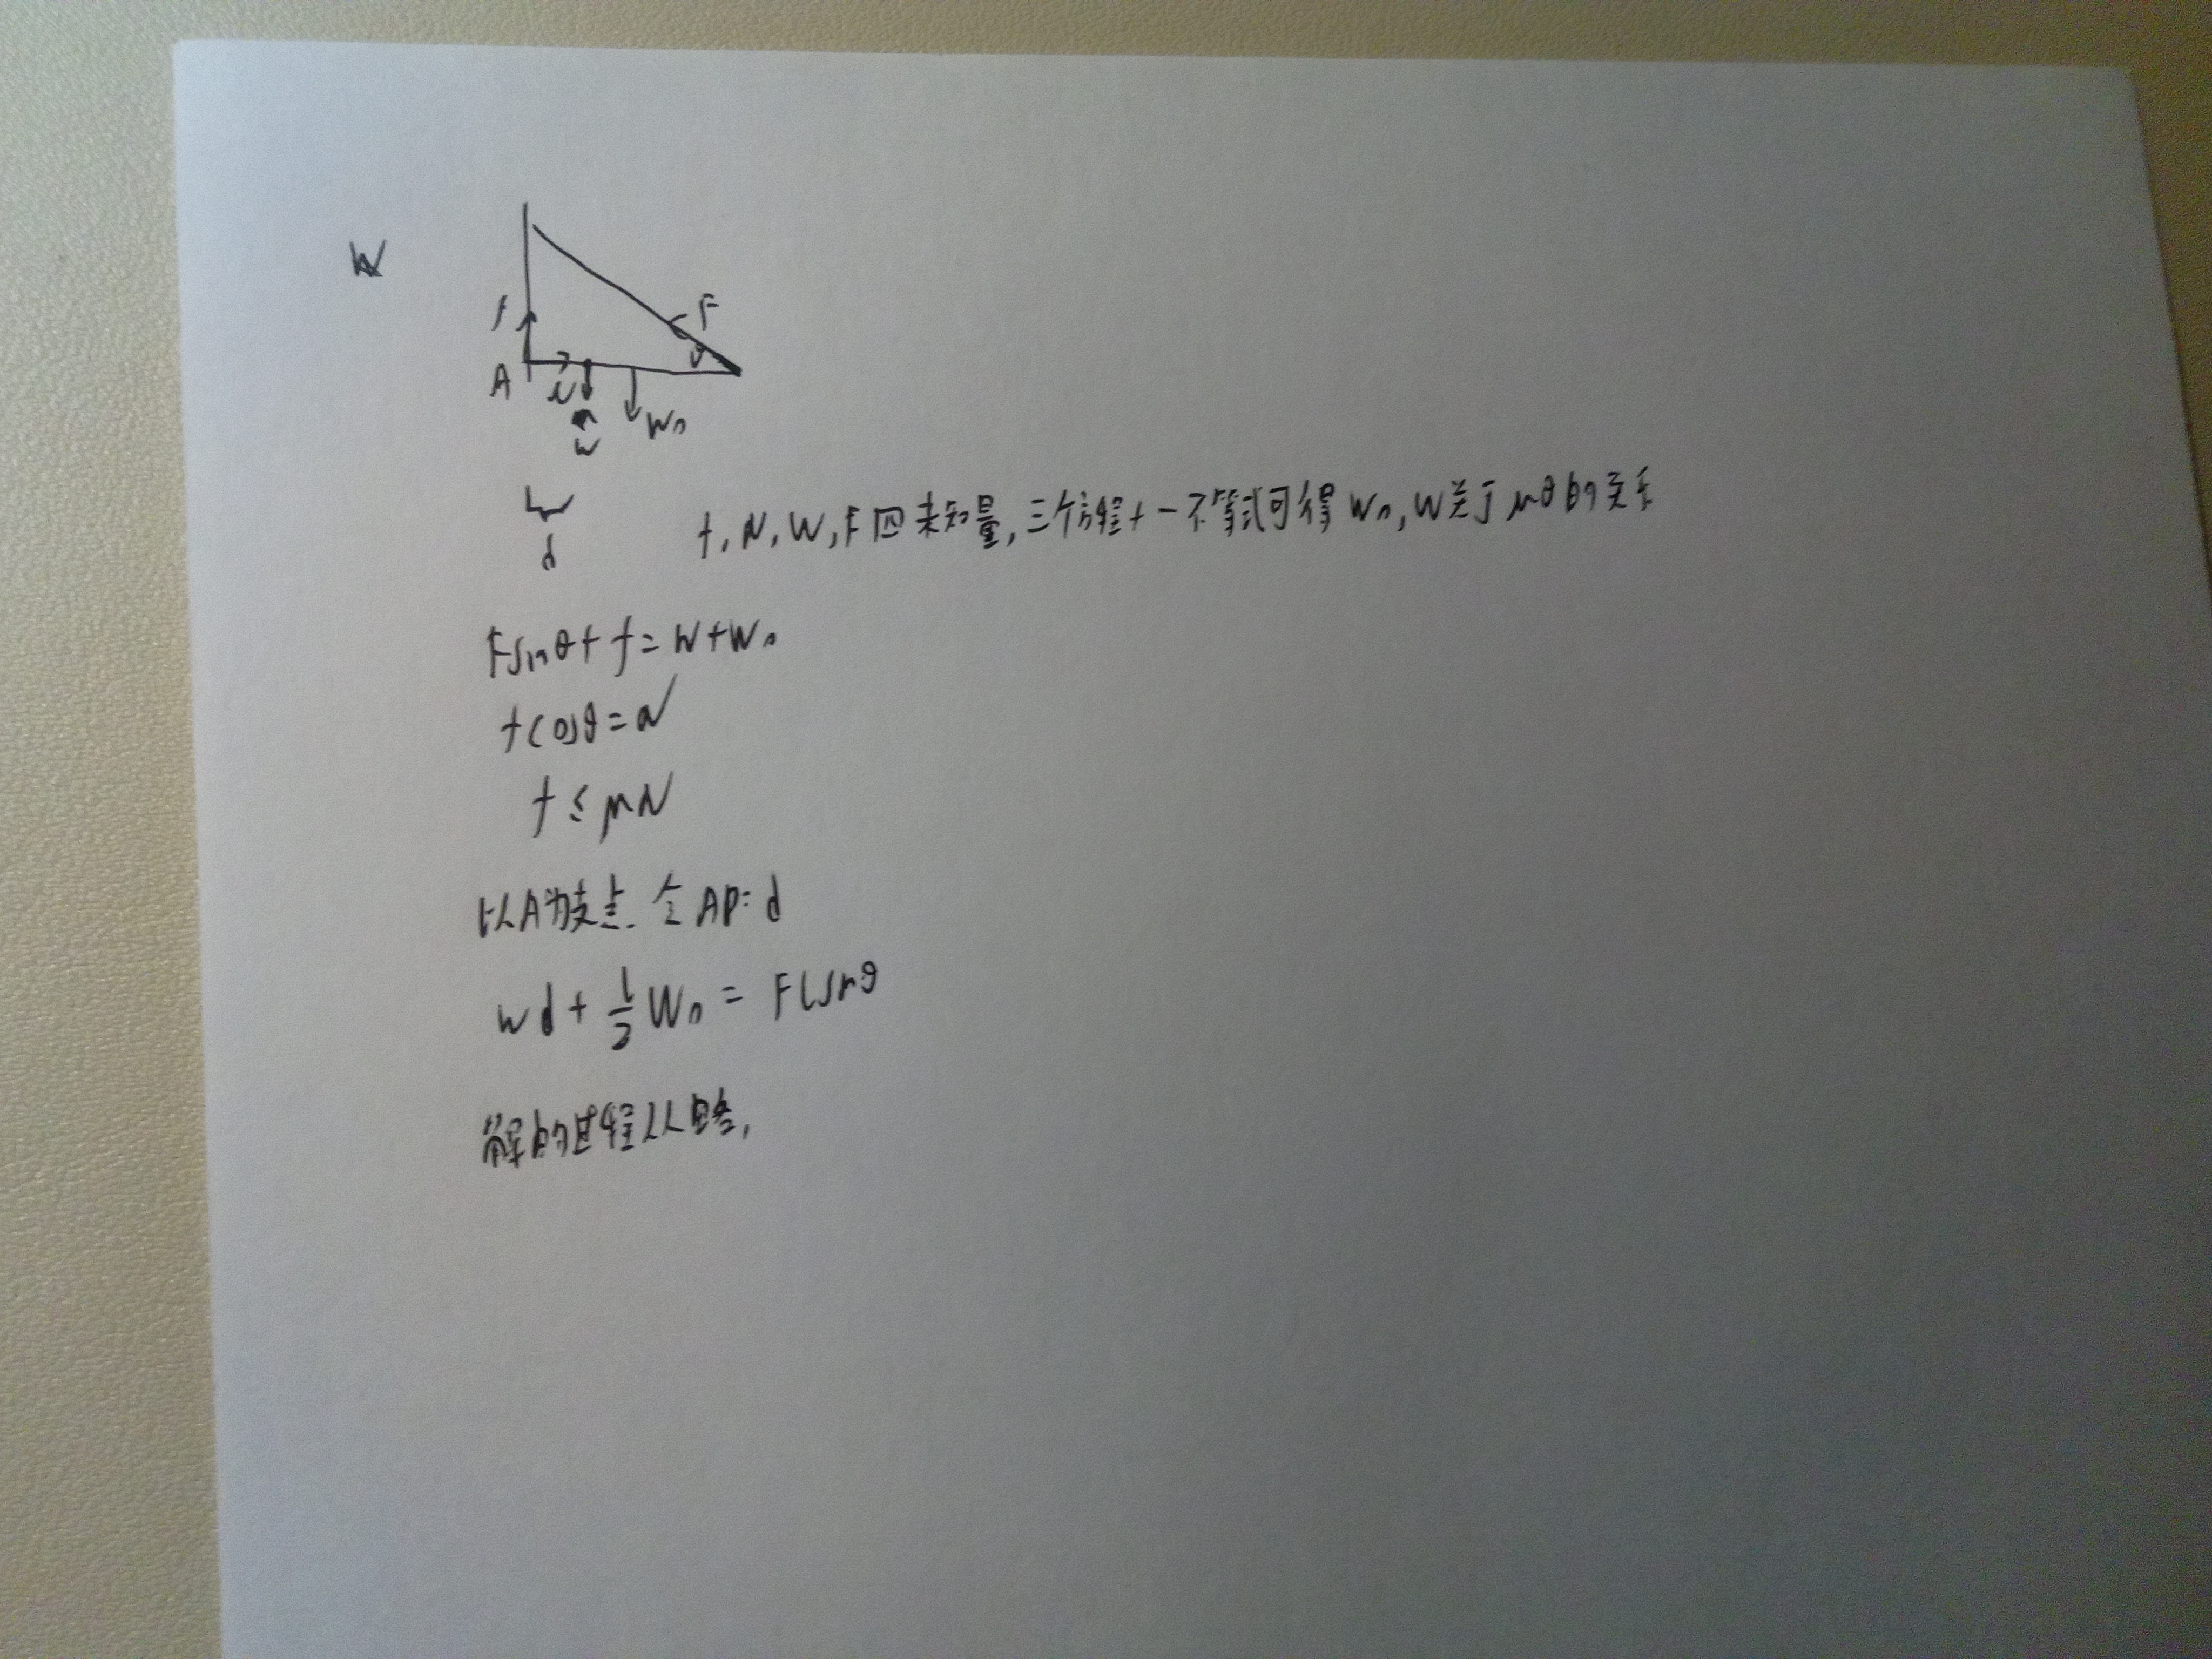 W
f
F
θ
A
N
W
W₀
d
f,N,W,F四未知量,三个方程+一不等式可得W₀,W关于μθ的关系
Fsinθ+f=W+W₀
Fcosθ=N
f≤μN
以A为支点.令AP=d
Wd+½W₀=Flsinθ
解的过程从略,